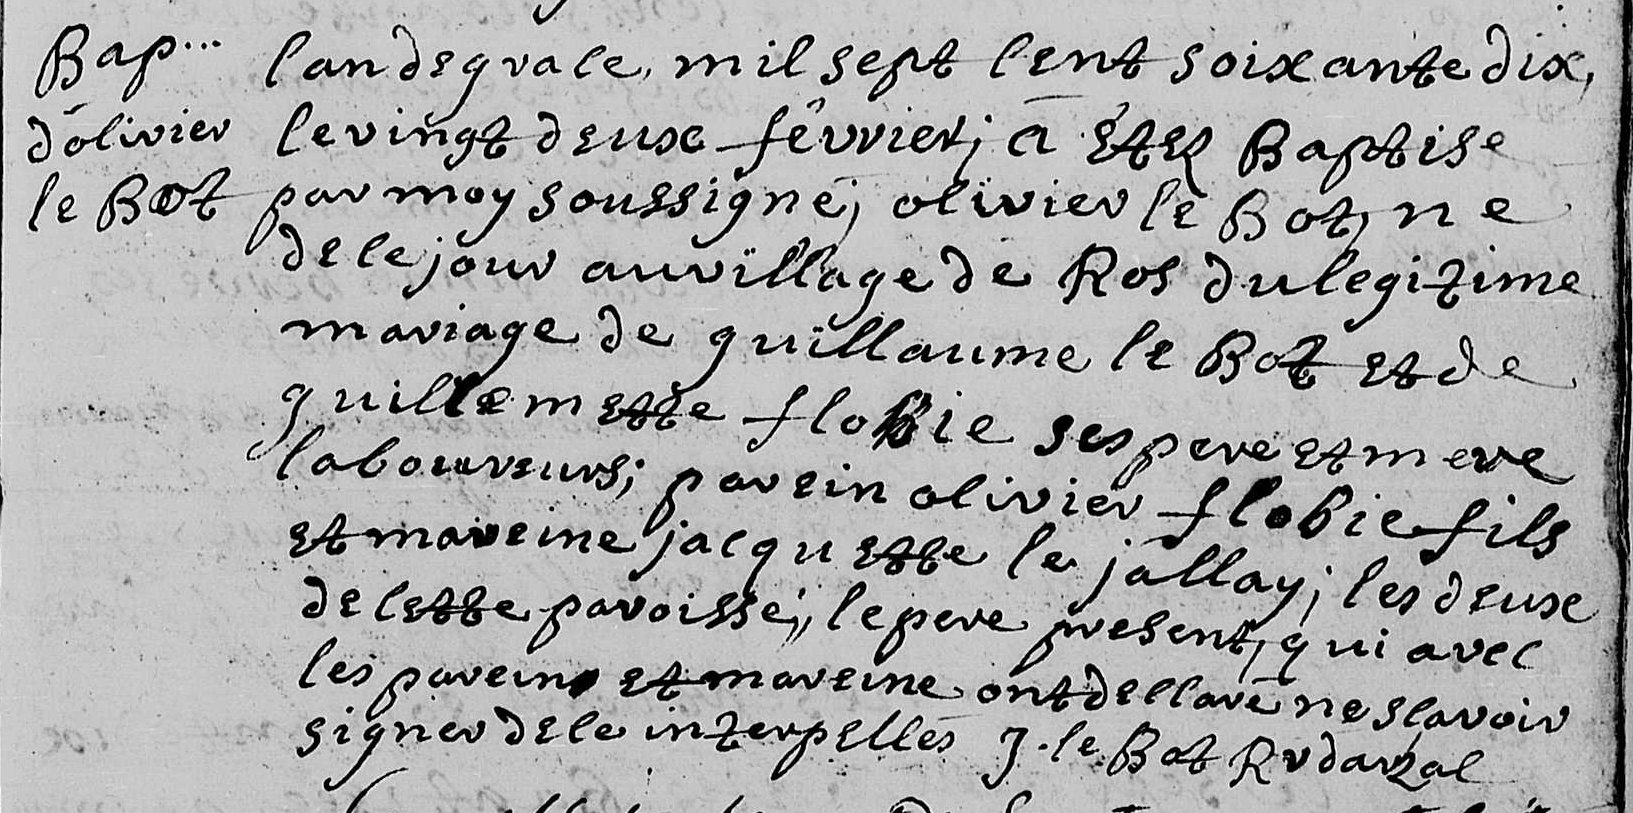 Bap...
d'olivier
le Bot
lan de grace, mil sept cent soixante dix,
le vingt deuxe fevrier; a étez Baptise
par moy soussigné; olivier le Bot, ne
de ce jour au village de Ros du legitime
mariage de guillaume le Bot et de
guillemette flohic ses pere et mere
laboureurs; parein olivier flohic fils
et mareine jacquette le jallay; les deuxe
de cette paroisse; le pere present, qui avec
les parein et mareine ont declaré ne scavoir
signer de ce interpellés J. le Bot